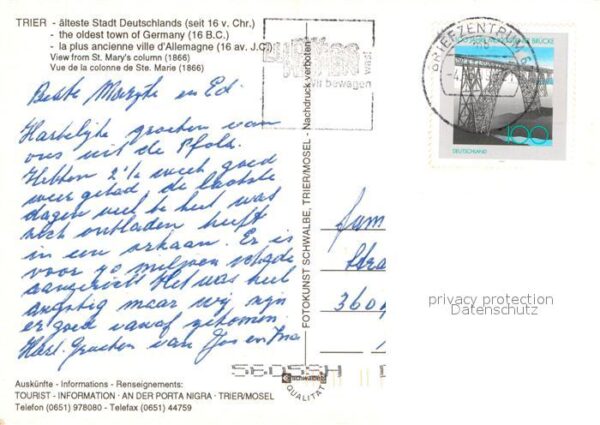 TRIER - älteste Stadt Deutschlands (seit 16 v. Chr.)
- the oldest town of Germany (16 B.C.)
- la plus ancienne ville d'Allemagne (16 av. J.C.)
View from St. Mary's column (1866)
Vue de la colonne de Ste. Marie (1866)
Beste Marythe en Ed.
Hartelijke groeten van
ons uit de Pfalz.
Hebben 2½ week goed
weer gehad de laatste
dagen veel
zich ontladen heeft
in een orkaan. Er is
voor 70 miljoen schade
aangericht Het was heel
angstig maar wij zijn
er goed vanaf gekomen.
Hart. Groeten van Jos en Ina
Auskünfte - Informations - Renseignements:
TOURIST - INFORMATION · AN DER PORTA NIGRA · TRIER/MOSEL
Telefon (0651) 978080 - Telefax (0651) 44759
FOTOKUNST SCHWALBE, TRIER/MOSEL - Nachdruck verboten
bewegen
schwalbe
QUALITÄT
BRIEFZENTRUM
BRÜCKE
100
DEUTSCHLAND
Fam
Stra
360
privacy protection
Datenschutz